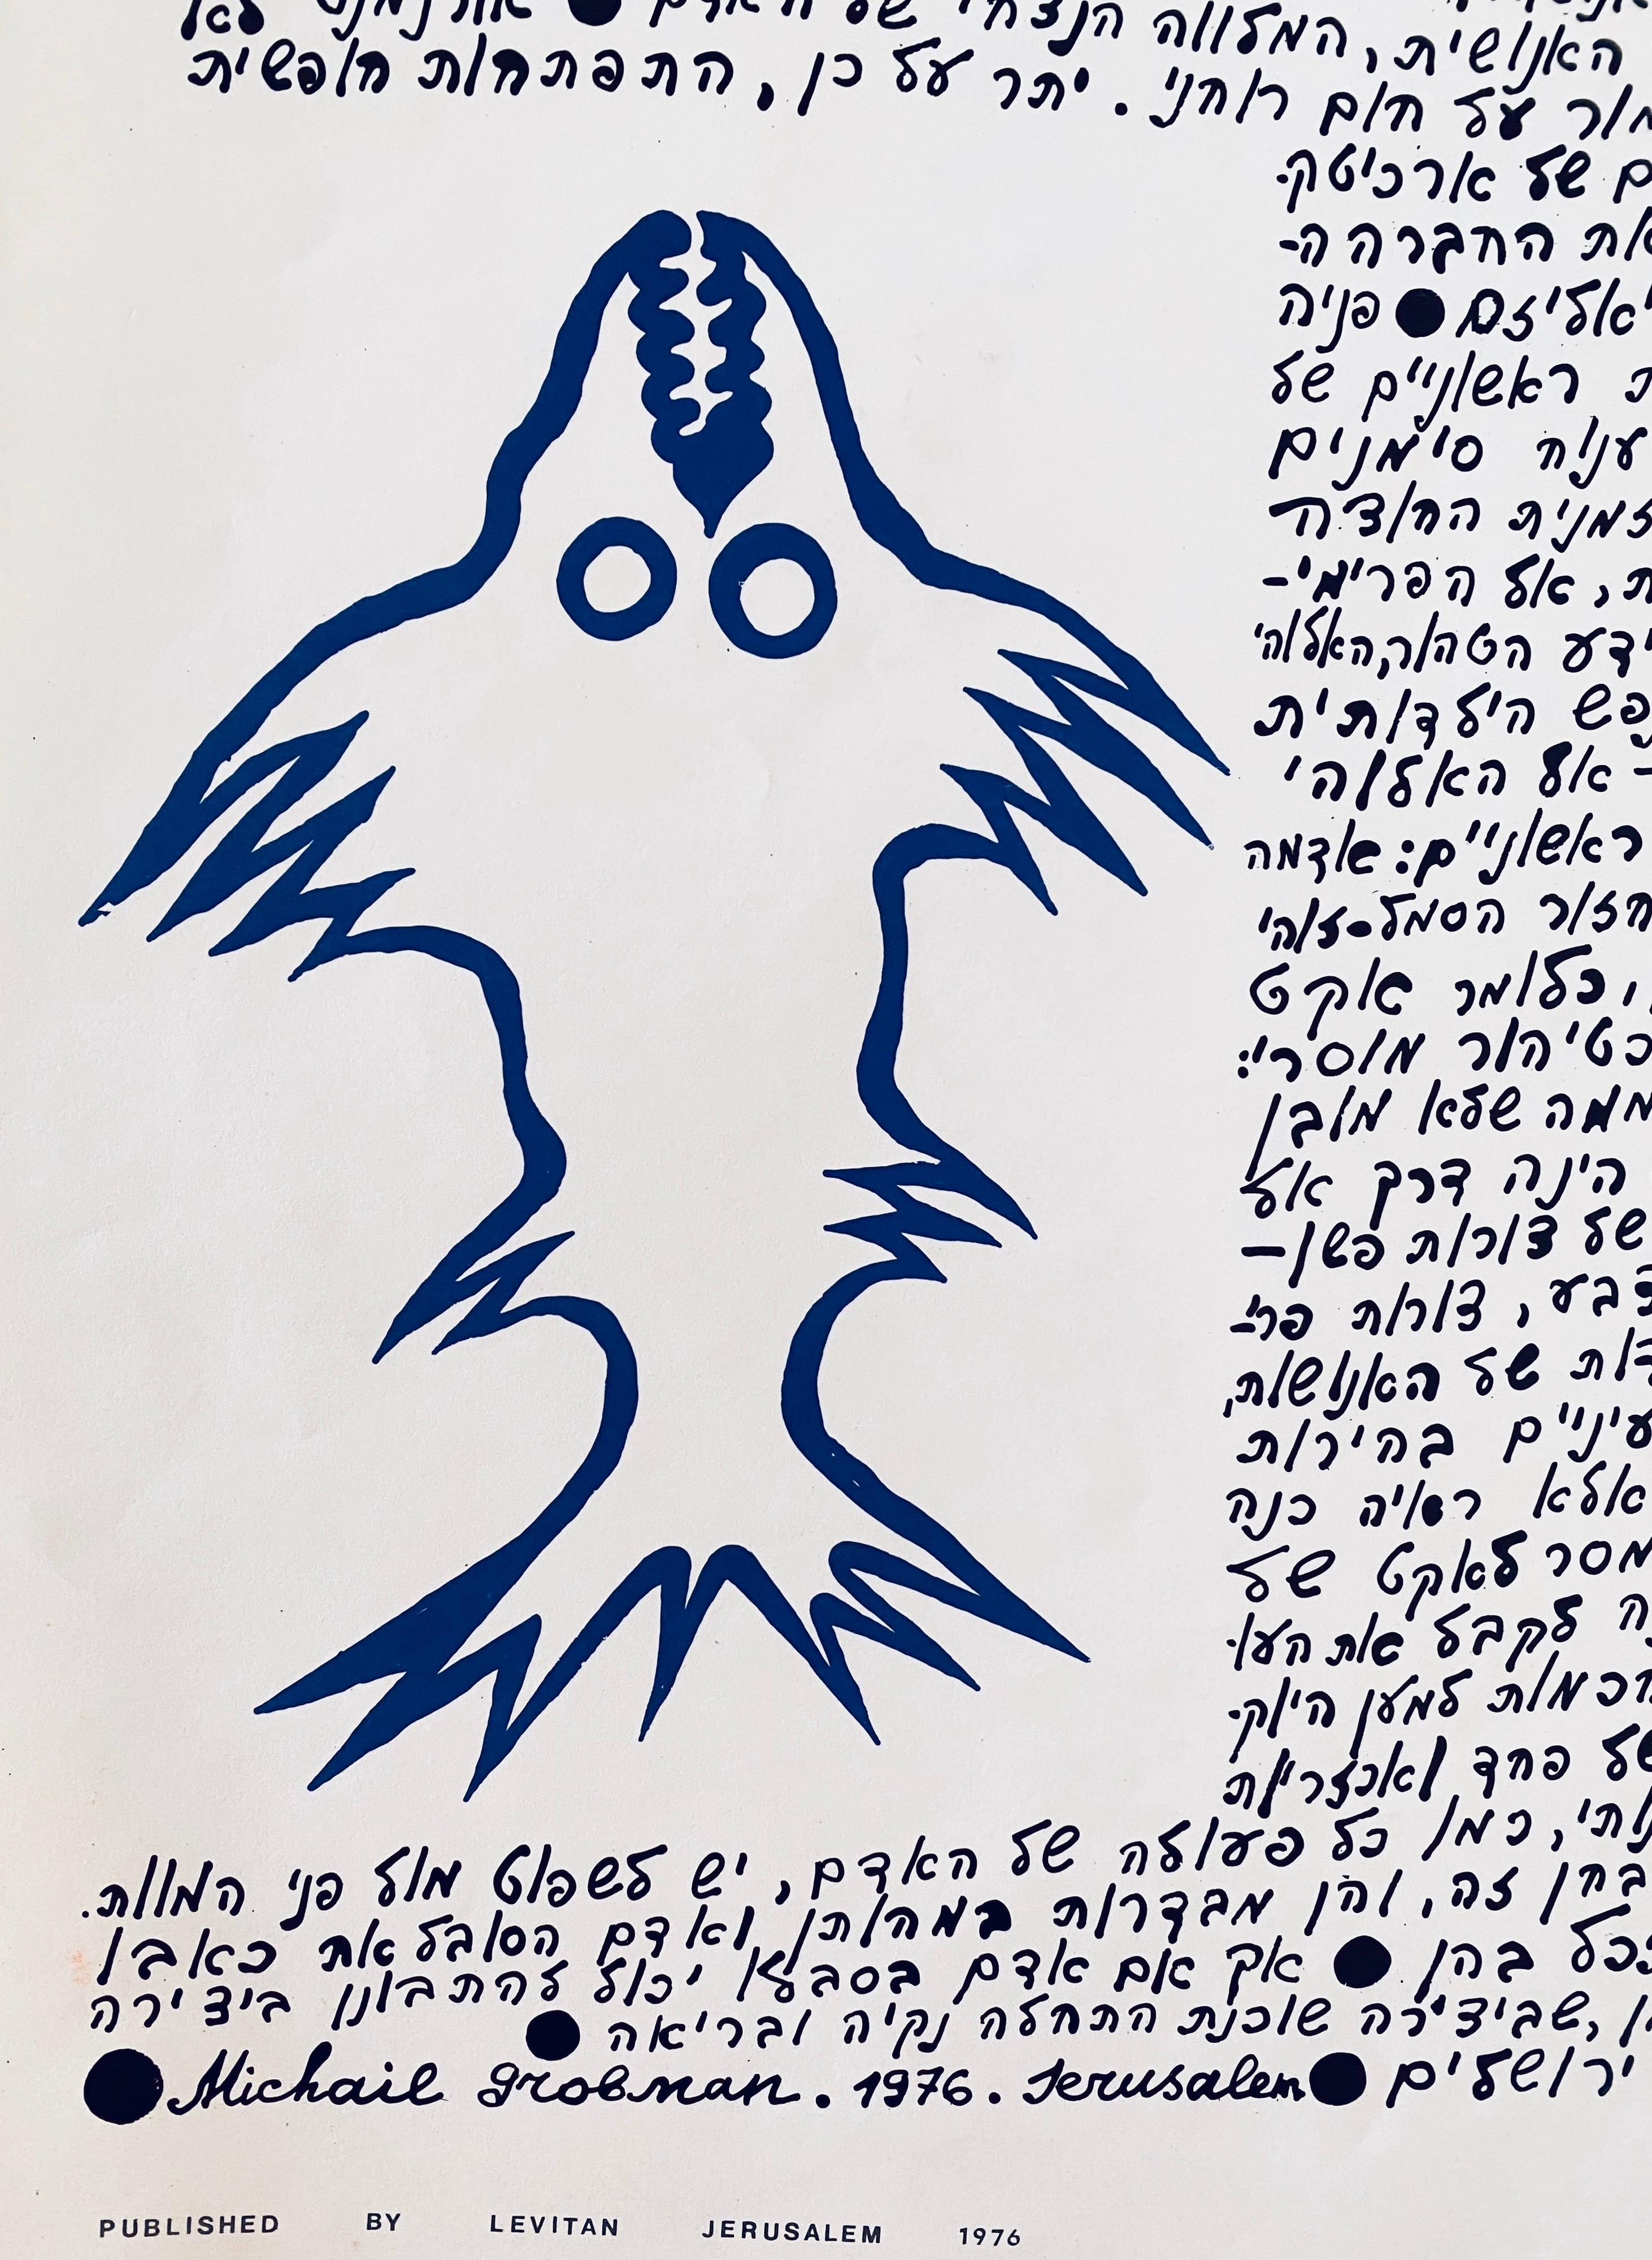 של האדם ● אורנמנט לא
האנושית, המלווה הנצחי
מור על חום רוחני. יתר על כן, התפתחות חופשית
ם של ארכיטק-
את החברה ה-
יאליזם ● פניה
ת ראשוניים של
ענוח סימנים
זמנית החודה
ת, אל הפרימי-
ידע הטהור, האלוהי
פש הילדותית
- אל האלוהי
ראשוניים: אדמה
חזור הסמל-זוהי
, כלומר אקט
כטיהור מוסרי:
ממה שלא מובן
הינה דרך אל
של צורות פשו-
צבע, צורות פרי-
דות של האנושות,
עיניים בהירות
אלא ראיה כנה
מסר לאקט של
ה לקבל את העו-
רכמות למען היוק-
של פחד ואכזריות
נותי, כמו כל פעולה של האדם, יש לשפוט מול פני המוות.
בחן זה, והן מבדרות במהותן ואדם הסובל את כאבו
כל בהן ● אך אם אדם בסבלו יכול להתבונן ביצירה
ן, שביצירה שוכנת התחלה נקיה ובריאה ●
ירושלים ● Michail Grobman. 1976. Jerusalem ●
PUBLISHED BY LEVITAN JERUSALEM 1976